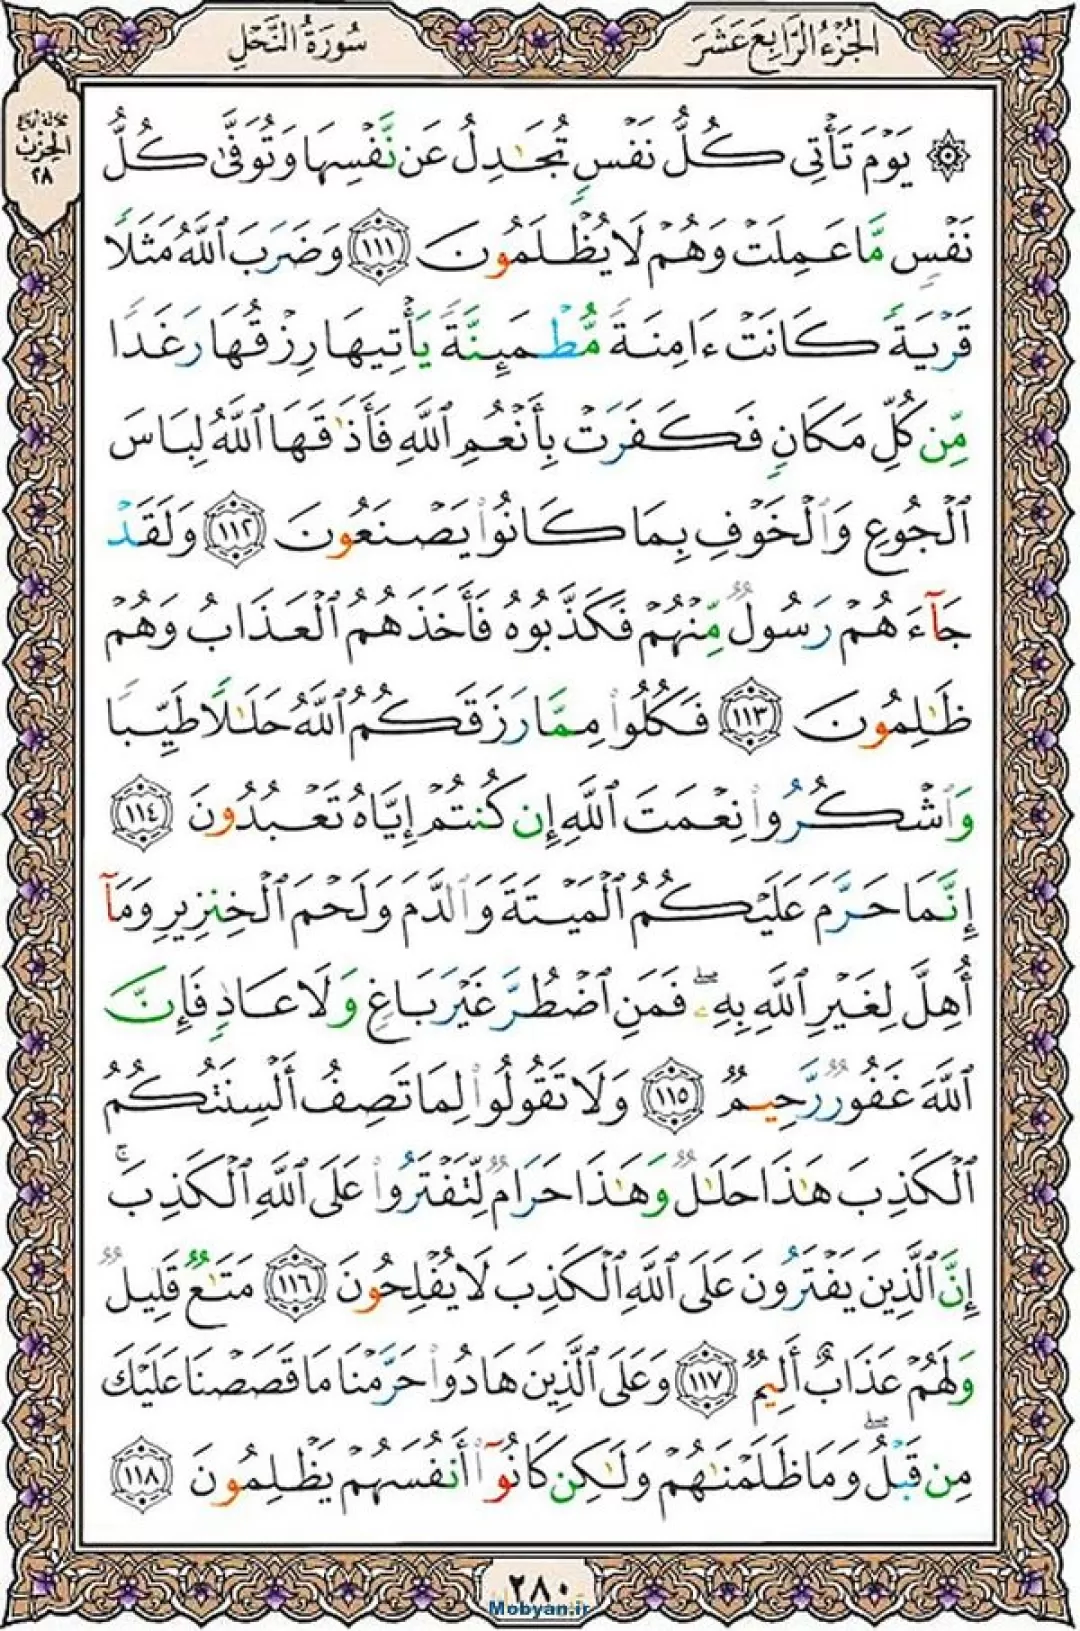 الجُزءُ الرَّابِعَ عَشَرَ
سُورَةُ النَّحْلِ
ثلاثة أرباع
الحِزب
٢٨
۞ يَوْمَ تَأْتِى كُلُّ نَفْسٍ تُجَٰدِلُ عَن نَّفْسِهَا وَتُوَفَّىٰ كُلُّ
نَفْسٍ مَّا عَمِلَتْ وَهُمْ لَا يُظْلَمُونَ ١١١ وَضَرَبَ ٱللَّهُ مَثَلًا
قَرْيَةً كَانَتْ ءَامِنَةً مُّطْمَئِنَّةً يَأْتِيهَا رِزْقُهَا رَغَدًا
مِّن كُلِّ مَكَانٍ فَكَفَرَتْ بِأَنْعُمِ ٱللَّهِ فَأَذَٰقَهَا ٱللَّهُ لِبَاسَ
ٱلْجُوعِ وَٱلْخَوْفِ بِمَا كَانُوا۟ يَصْنَعُونَ ١١٢ وَلَقَدْ
جَآءَهُمْ رَسُولٌ مِّنْهُمْ فَكَذَّبُوهُ فَأَخَذَهُمُ ٱلْعَذَابُ وَهُمْ
ظَٰلِمُونَ ١١٣ فَكُلُوا۟ مِمَّا رَزَقَكُمُ ٱللَّهُ حَلَٰلًا طَيِّبًا
وَٱشْكُرُوا۟ نِعْمَتَ ٱللَّهِ إِن كُنتُمْ إِيَّاهُ تَعْبُدُونَ ١١٤
إِنَّمَا حَرَّمَ عَلَيْكُمُ ٱلْمَيْتَةَ وَٱلدَّمَ وَلَحْمَ ٱلْخِنزِيرِ وَمَآ
أُهِلَّ لِغَيْرِ ٱللَّهِ بِهِۦ ۖ فَمَنِ ٱضْطُرَّ غَيْرَ بَاغٍ وَلَا عَادٍ فَإِنَّ
ٱللَّهَ غَفُورٌ رَّحِيمٌ ١١٥ وَلَا تَقُولُوا۟ لِمَا تَصِفُ أَلْسِنَتُكُمُ
ٱلْكَذِبَ هَٰذَا حَلَٰلٌ وَهَٰذَا حَرَامٌ لِّتَفْتَرُوا۟ عَلَى ٱللَّهِ ٱلْكَذِبَ ۚ
إِنَّ ٱلَّذِينَ يَفْتَرُونَ عَلَى ٱللَّهِ ٱلْكَذِبَ لَا يُفْلِحُونَ ١١٦ مَتَٰعٌ قَلِيلٌ
وَلَهُمْ عَذَابٌ أَلِيمٌ ١١٧ وَعَلَى ٱلَّذِينَ هَادُوا۟ حَرَّمْنَا مَا قَصَصْنَا عَلَيْكَ
مِن قَبْلُ ۖ وَمَا ظَلَمْنَٰهُمْ وَلَٰكِن كَانُوٓا۟ أَنفُسَهُمْ يَظْلِمُونَ ١١٨
٢٨٠
Mobyan.ir